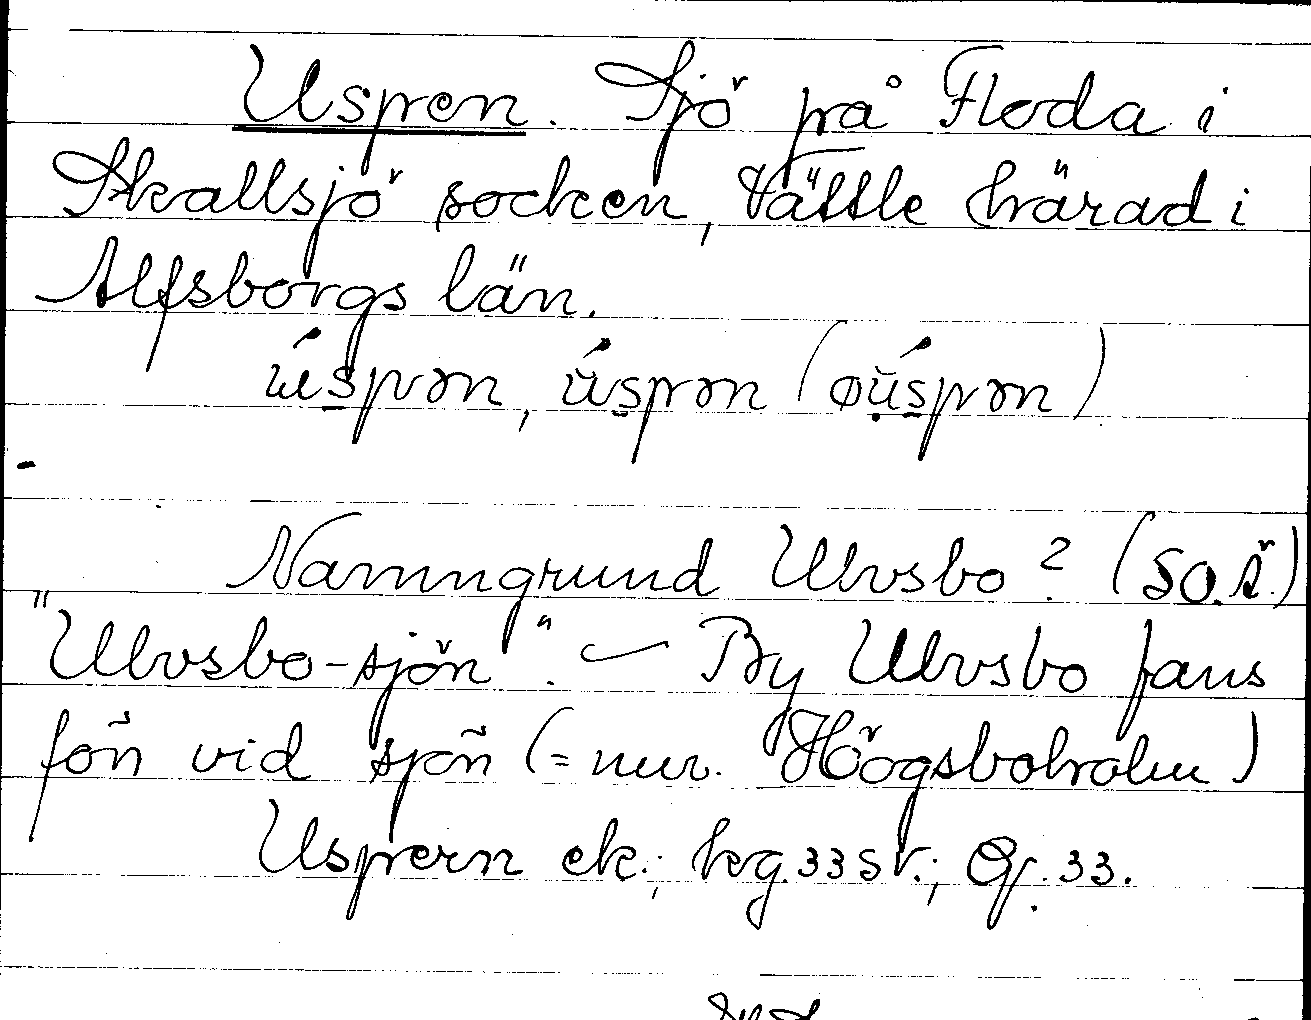 Uspen. Sjö på Floda i
Skallsjö socken, Vättle härad i
Alfsborgs län.
úspən, ǘspən (øǘspən)
Namngrund Ulvsbo? (SO.Ä.)
"Ulvsbo-sjön". — By Ulvsbo fans
förr vid sjön (= nuv. Högsboholm)
Uspern ek.; hrg. 33 SV.; Gf. 33.